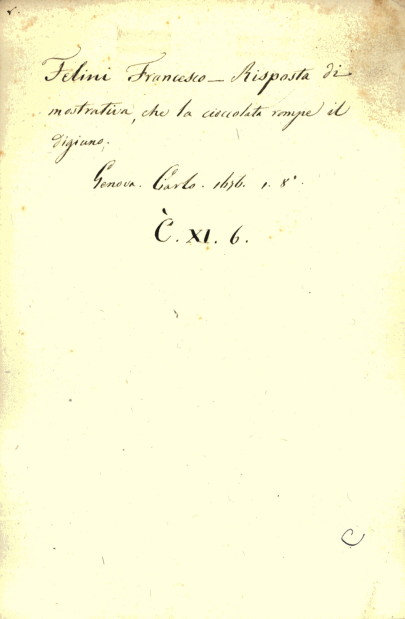 Felini Francesco — Risposta di
mostrativa, che la cioccolata rompe il
digiuno.
Genova. Carlo. 1676. 1. 8°.
Č. XI. 6.
C